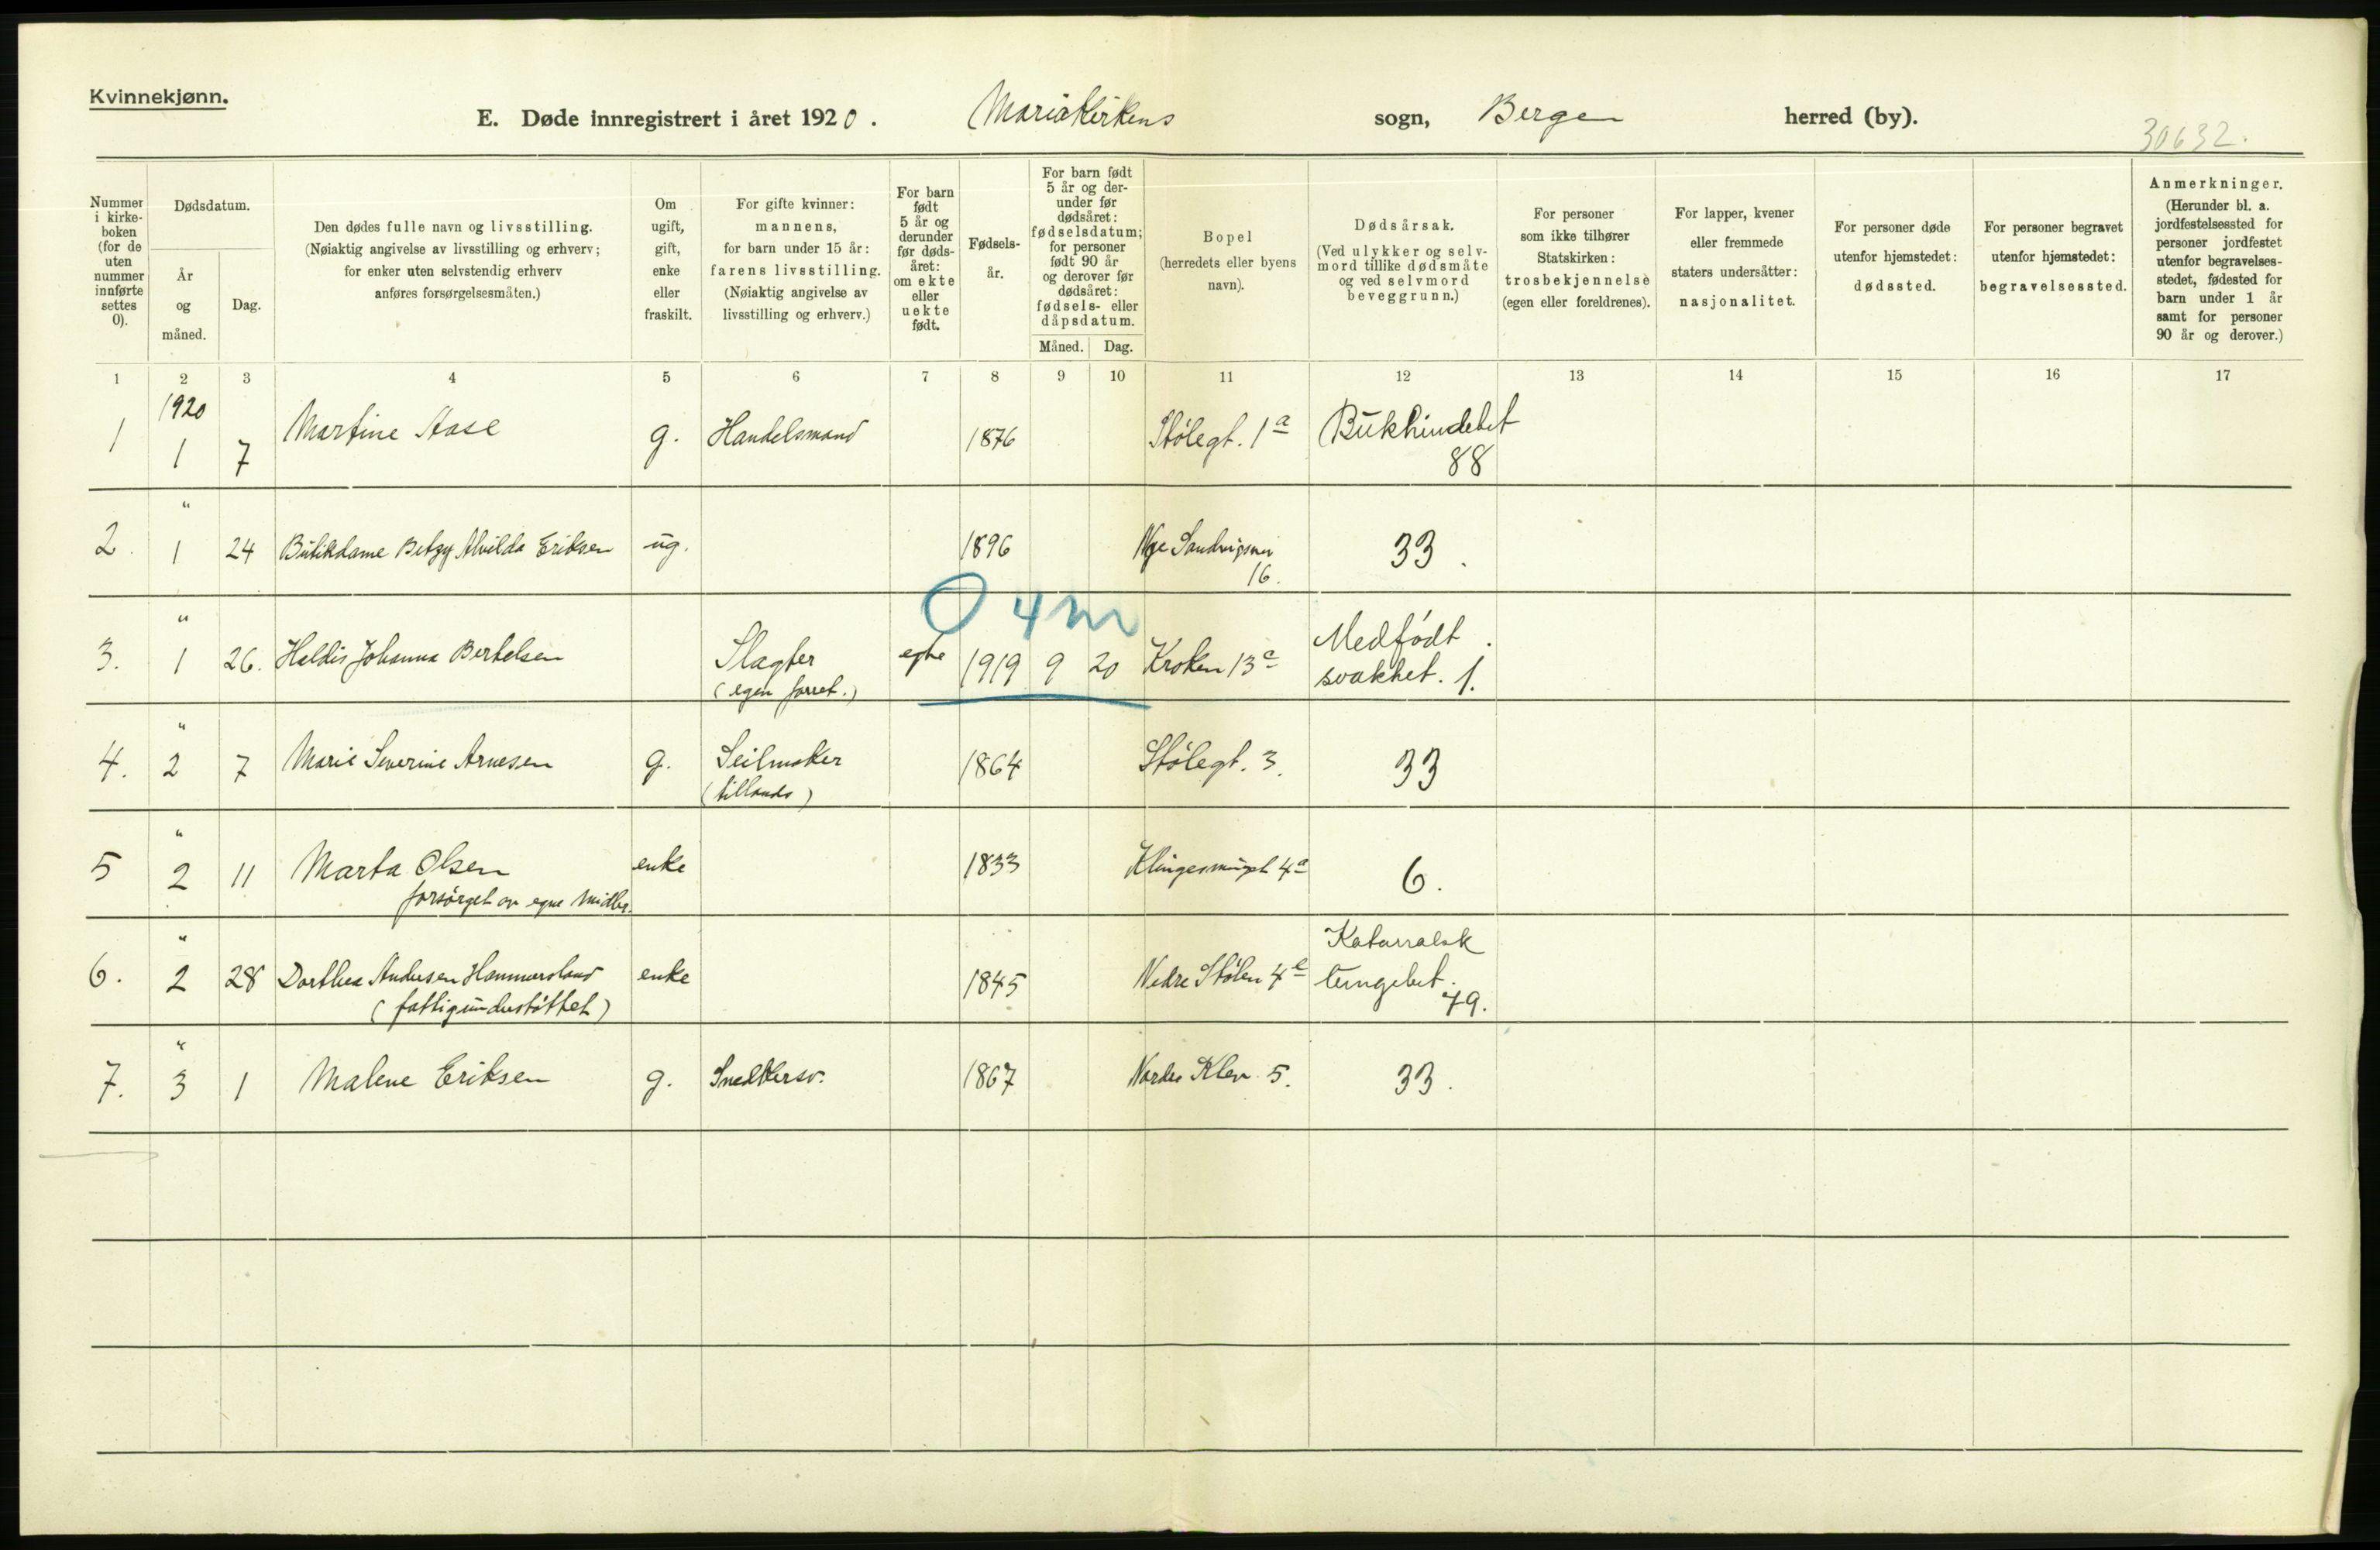 Kvinnekjønn.
E. Døde innregistrert i året 1920. Mariakirkens sogn, Bergen herred (by).
30632.
Nummer i kirke-boken (for de uten nummer innførte settes 0).
Dødsdatum.
År og måned.
Dag.
Den dødes fulle navn og livsstilling.
(Nøiaktig angivelse av livsstilling og erhverv;
for enker uten selvstendig erhverv
anføres forsørgelsesmåten.)
Om
ugift,
gift,
enke
eller
fraskilt.
For gifte kvinner:
mannens,
for barn under 15 år:
farens livsstilling.
(Nøiaktig angivelse av
livsstilling og erhverv.)
For barn
født
5 år og
derunder
før døds-
året:
om ekte
eller
uekte
født.
Fødsels-
år.
For barn født
5 år og der-
under før
dødsåret:
fødselsdatum;
for personer
født 90 år
og derover før
dødsåret:
fødsels- eller
dåpsdatum.
Måned. Dag.
Bopel
(herredets eller byens
navn).
Dødsårsak.
(Ved ulykker og selv-
mord tillike dødsmåte
og ved selvmord
beveggrunn.)
For personer
som ikke tilhører
Statskirken:
trosbekjennelse
(egen eller foreldrenes).
For lapper, kvener
eller fremmede
staters undersåtter:
nasjonalitet.
For personer døde
utenfor hjemstedet:
dødssted.
For personer begravet
utenfor hjemstedet:
begravelsessted.
Anmerkninger.
(Herunder bl. a.
jordfestelsessted for
personer jordfestet
utenfor begravelses-
stedet, fødested for
barn under 1 år
samt for personer
90 år og derover.)
1 2 3 4 5 6 7 8 9 10 11 12 13 14 15 16 17
1920
1 1 7 Martine Aase g. Handelsmand 1876 Stølegt. 1a Bukhindebet
88
"
2. 1 24 Butikdame Betzy Alvilda Eriksen ug. 1896 Nye Sandvigsvei
16. 33.
0 4 m
"
3. 1 26. Haldis Johanna Bertelsen Slagter egte 1919 9 20 Kroken 13a Medfødt
(egen forret.) svakhet. 1.
"
4. 2 7 Marie Severine Arnesen g. Seilmaker 1864 Stølegt. 3. 33
(tillands)
"
5 2 11 Marta Olsen enke 1833 Klingesmuget 4a 6.
forsørget av egne midler.
"
6. 2 28 Dorthea Andersen Hammersland enke 1845 Nedre Stølen 4e Katarralsk
(fattigunderstøttet) lungebet.
79.
"
7. 3 1 Malene Eriksen g. Snedkersv. 1867 Nordre Klev 5. 33.